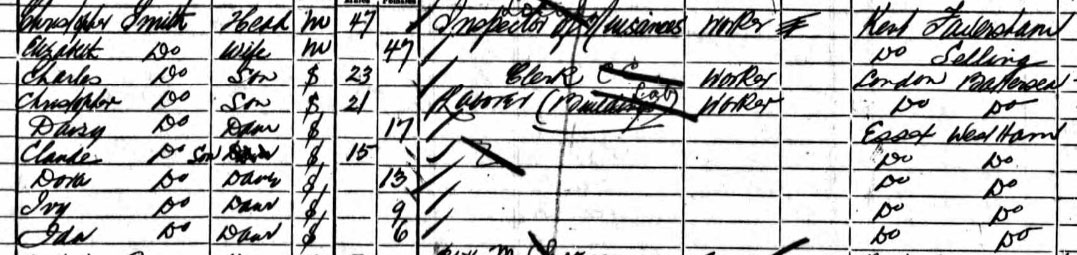 Christopher Smith Head M 47 Inspector of Nuisances Worker Kent Faversham
Elizabeth Do Wife M 47 Do Selling
Charles Do Son S 23 Clerk Worker London Battersea
Christopher Do Son S 21 Laborer (Builders) Worker Do Do
Daisy Do Daur S 17 Essex West Ham
Claude Do Son S 15 Do Do
Dora Do Daur S 13 Do Do
Ivy Do Daur S 9 Do Do
Ida Do Daur S 6 Do Do